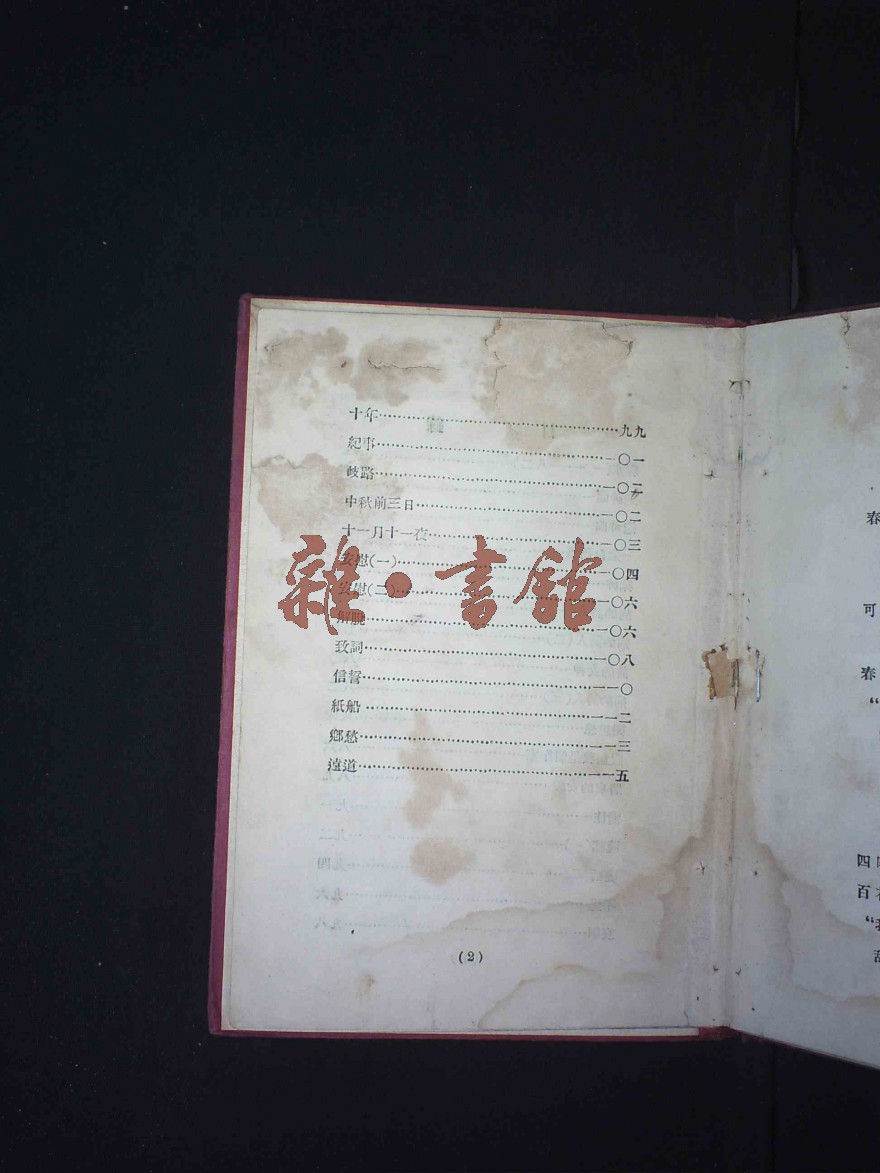 十年……九九
紀事……一〇一
歧路……一〇二
中秋前三日……一〇二
十一月十一夜……一〇三
安慰(一)……一〇四
安慰(二)……一〇六
解脫……一〇六
致詞……一〇八
信誓……一一〇
紙船……一一二
鄉愁……一一三
遠道……一一五
(2)
雜·書館
春
可
春
“
四
百
“我